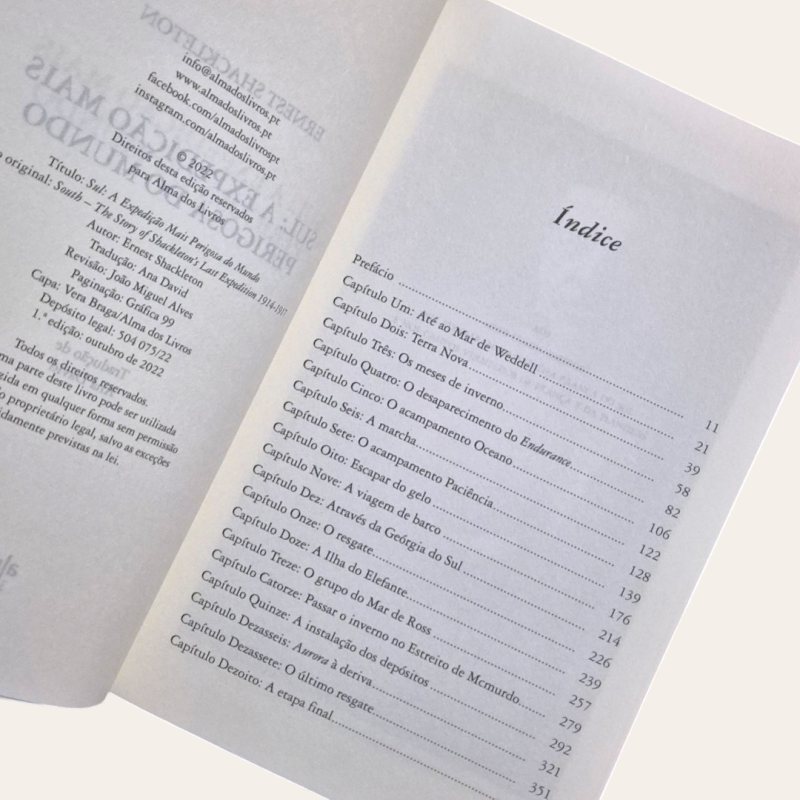 info@almadoslivros.pt
www.almadoslivros.pt
facebook.com/almadoslivrospt
instagram.com/almadoslivrospt
© 2022
Direitos desta edição reservados
para Alma dos Livros
Título: Sul: A Expedição Mais Perigosa do Mundo
original: South – The Story of Shackleton's Last Expedition 1914-1917
Autor: Ernest Shackleton
Tradução: Ana David
Revisão: João Miguel Alves
Paginação: Gráfica 99
Capa: Vera Braga/Alma dos Livros
Depósito legal: 504 075/22
1.ª edição: outubro de 2022
Todos os direitos reservados.
parte deste livro pode ser utilizada
em qualquer forma sem permissão
proprietário legal, salvo as exceções
previstas na lei.
Índice
Prefácio 11
Capítulo Um: Até ao Mar de Weddell 21
Capítulo Dois: Terra Nova 39
Capítulo Três: Os meses de inverno 58
Capítulo Quatro: O desaparecimento do Endurance 82
Capítulo Cinco: O acampamento Oceano 106
Capítulo Seis: A marcha 122
Capítulo Sete: O acampamento Paciência 128
Capítulo Oito: Escapar do gelo 139
Capítulo Nove: A viagem de barco 176
Capítulo Dez: Através da Geórgia do Sul 214
Capítulo Onze: O resgate 226
Capítulo Doze: A Ilha do Elefante 239
Capítulo Treze: O grupo do Mar de Ross 257
Capítulo Catorze: Passar o inverno no Estreito de Mcmurdo 279
Capítulo Quinze: A instalação dos depósitos 292
Capítulo Dezasseis: Aurora à deriva 321
Capítulo Dezassete: O último resgate 351
Capítulo Dezoito: A etapa final